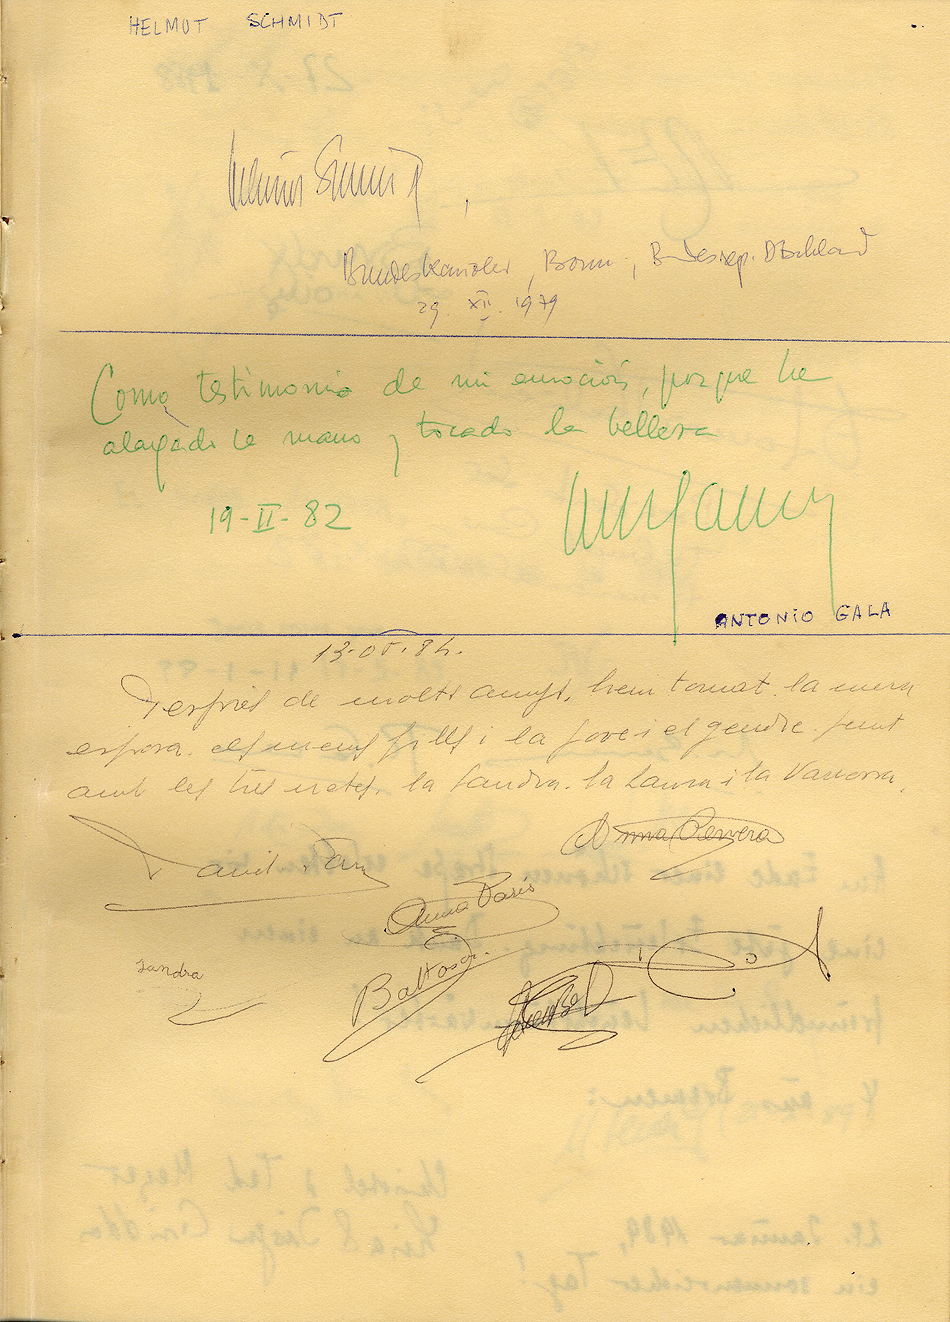 HELMUT SCHMIDT
Helmut Schmidt
Bundeskanzler, Bonn, Bundesrep. Dschland
29. XII. 1979
Como testimonio de mi emoción, porque he
alargado la mano y tocado la belleza
19-II-82
ANTONIO GALA
13-05-84.
Després de molts anys, hem tornat. la meva
esposa. els meus fills i la jove i el gendre. junt
amb les tres netes, la Sandra. la Laura i la Vanessa.
Anna
Anna Paris
Sandra
Baltasar